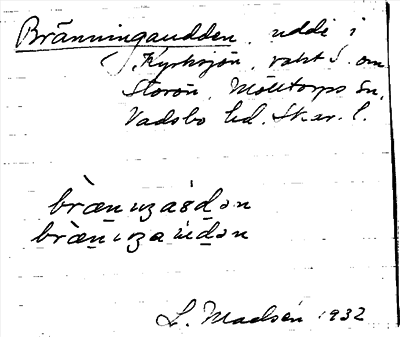 Bränningaudden, udde i
Kyrksjön, rakt S. om
Storön, Mölltorps sn,
Vadsbo hd. Skar. l.
L. Madsén 1932